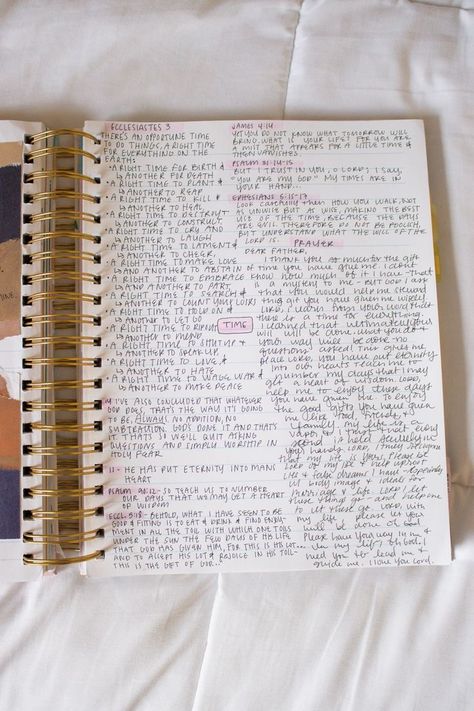 ECCLESIASTES 3
THERE'S AN OPPORTUNE TIME
TO DO THINGS, A RIGHT TIME
FOR EVERYTHING ON THE
EARTH:
• A RIGHT TIME FOR BIRTH &
↳ ANOTHER FOR DEATH
• A RIGHT TIME TO PLANT &
↳ ANOTHER TO REAP
• A RIGHT TIME TO KILL &
↳ ANOTHER TO HEAL
• A RIGHT TIME TO DESTROY &
↳ ANOTHER TO CONSTRUCT
• A RIGHT TIME TO CRY AND
↳ ANOTHER TO LAUGH
• A RIGHT TIME TO LAMENT &
↳ ANOTHER TO CHEER
• A RIGHT TIME TO MAKE LOVE
↳ AND ANOTHER TO ABSTAIN
• A RIGHT TIME TO EMBRACE
↳ AND ANOTHER TO PART
• A RIGHT TIME TO SEARCH &
↳ ANOTHER TO COUNT YOUR LOSS
• A RIGHT TIME TO HOLD ON &
↳ ANOTHER TO LET GO
• A RIGHT TIME TO RIP AND
↳ ANOTHER TO MEND
• A RIGHT TIME TO SHUT UP &
↳ ANOTHER TO SPEAK UP
• A RIGHT TIME TO LOVE &
↳ ANOTHER TO HATE
• A RIGHT TIME TO WAGE WAR &
↳ ANOTHER TO MAKE PEACE
I'VE ALSO CONCLUDED THAT WHATEVER
GOD DOES, THAT'S THE WAY IT'S GOING
TO BE, ALWAYS. NO ADDITION, NO
SUBTRACTION. GOD'S DONE IT AND THAT'S
IT. THAT'S SO WE'LL QUIT ASKING
QUESTIONS AND SIMPLY WORSHIP IN
HOLY FEAR
11 - HE HAS PUT ETERNITY INTO MANS
HEART
PSALM 90:12 - SO TEACH US TO NUMBER
OUR DAYS THAT WE MAY GET A HEART
OF WISDOM
ECCL. 5:18 - BEHOLD, WHAT I HAVE SEEN TO BE
GOOD & FITTING IS TO EAT & DRINK & FIND ENJOY
MENT IN ALL THE TOIL WITH WHICH ONE TOILS
UNDER THE SUN THE FEW DAYS OF HIS LIFE
THAT GOD HAS GIVEN HIM, FOR THIS IS HIS LOT...
AND TO ACCEPT HIS LOT & REJOICE IN HIS TOIL -
THIS IS THE GIFT OF GOD...
TIME
JAMES 4:14
YET YOU DO NOT KNOW WHAT TOMORROW WILL
BRING. WHAT IS YOUR LIFE? FOR YOU ARE
A MIST THAT APPEARS FOR A LITTLE TIME &
THEN VANISHES.
PSALM 31:14-15
BUT I TRUST IN YOU, O LORD; I SAY,
"YOU ARE MY GOD." MY TIMES ARE IN
YOUR HAND...
EPHESIANS 5:15-17
LOOK CAREFULLY THEN HOW YOU WALK, NOT
AS UNWISE BUT AS WISE, MAKING THE BEST
USE OF THE TIME, BECAUSE THE DAYS
ARE EVIL. THEREFORE DO NOT BE FOOLISH,
BUT UNDERSTAND WHAT THE WILL OF THE
LORD IS.
PRAYER
DEAR FATHER,
I thank you so much for the gift
of time you have given me. I don't
know how much of it I have - that
is a mystery to me - but God I ask
that you would help me steward
this gift you have given me wisely.
Lord, I learn from your word that
there is a time for everything.
I learned that ultimately your
will will be done, and you &
your way will be done no
questions asked.
Lord, you have put eternity
into our hearts, teach me to
number my days that I may
get a heart of wisdom. Lord,
help me to enjoy these days
you have given me. To enjoy
the good gifts you have given
me
family. My life is a
vapor,
in
your hands, Lord,
that my life is yours. Please be
Lord of my life & help
life & fake dreams I have
guide me. I love you Lord.